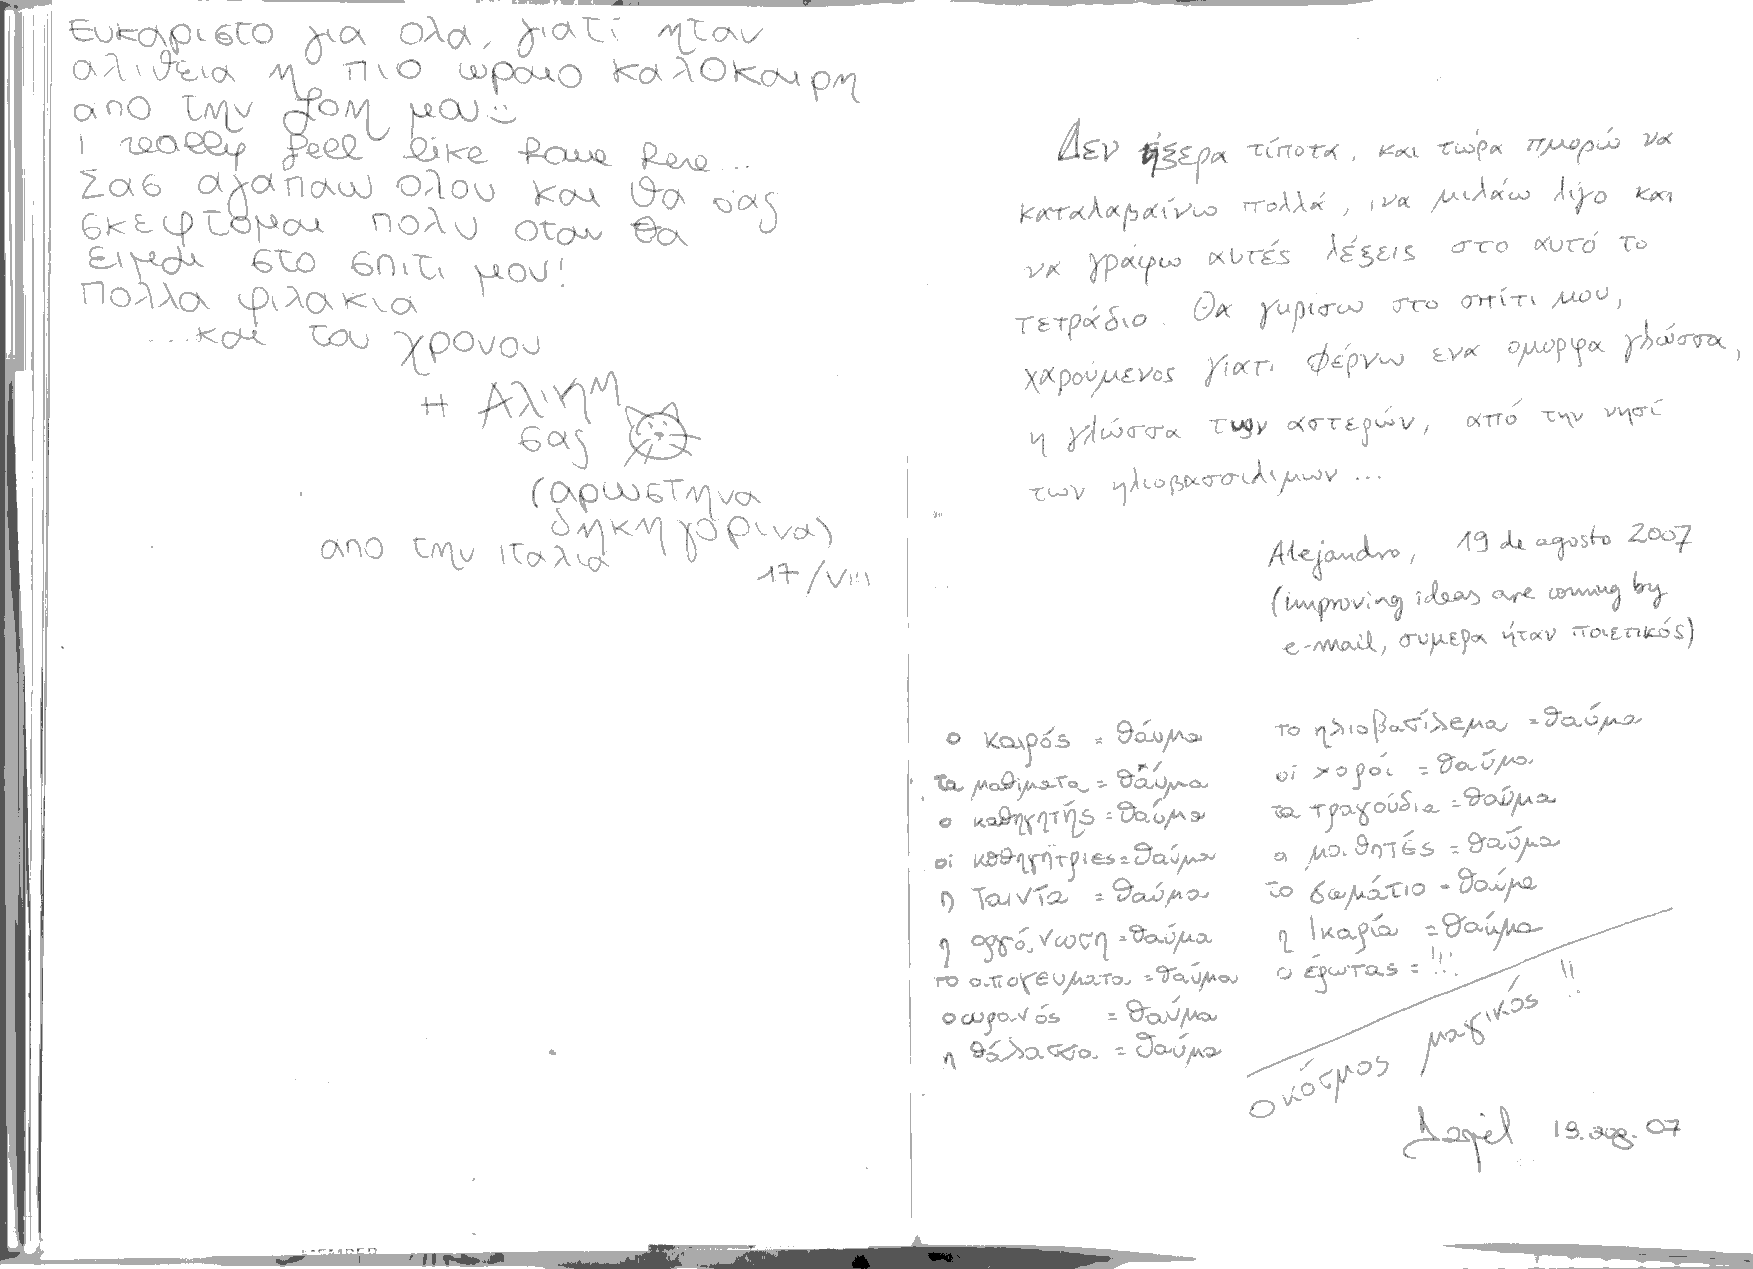 Ευκαριστο για ολα, γιατί ηταν
αλιθεια η πιο ωραιο καλοκαιρη
απο την ζοη μου :)
I really feel like home here...
Σας αγαπαω ολου και θα σας
σκεφτομαι πολυ οταν θα
ειμαι στο σπιτι μου!
Πολλα φιλακια
...και του χρονου
Η Αλικη
σας
(αρωστηνα
δηκηγορινα)
απο την ιταλια
17/VIII
Δεν ήξερα τίποτα, και τώρα πμορώ να
καταλαβαίνω πολλά, ινα μιλάω λίγο και
να γράψω αυτές λέξεις στο αυτό το
τετράδιο. Θα γυρίσω στο σπίτι μου,
χαρούμενος γιατι φέρνω ενα ομορφα γλώσσα,
η γλώσσα των αστερών, από την νησί
των ηλιοβασσιλιμων...
Alejandro, 19 de agosto 2007
(improving ideas are coming by
e-mail, συμερα ήταν ποιετικός)
ο καιρός = θάυμα
τα μαθιματα = θαύμα
ο καθηγητής = θαύμα
οί καθηγήτριες = θαύμα
η ταιντα = θαύμα
η οργάνωση = θαύμα
το απογευματα = θαύμα
ο ωρανός = θαύμα
η θάλασσα = θαύμα
το ηλιοβασίλεμα = θαύμα
οί χοροί = θαύμα
τα τραγούδια = θαύμα
ο μαθητές = θαύμα
το δωμάτιο = θαύμα
η Ικαρία = θαύμα
ο έρωτας = !!!
Ο κόσμος μαγικός !!
19. αυγ. 07